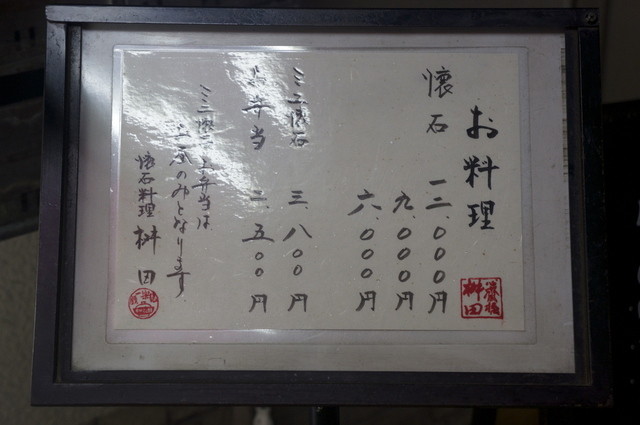 お料理
懐石 一二、〇〇〇円
九、〇〇〇円
六、〇〇〇円
ミニ懐石 三、八〇〇円
お弁当 二、五〇〇円
ミニ懐石、お弁当は
お昼のみとなります
懐石料理 桝田
桝田